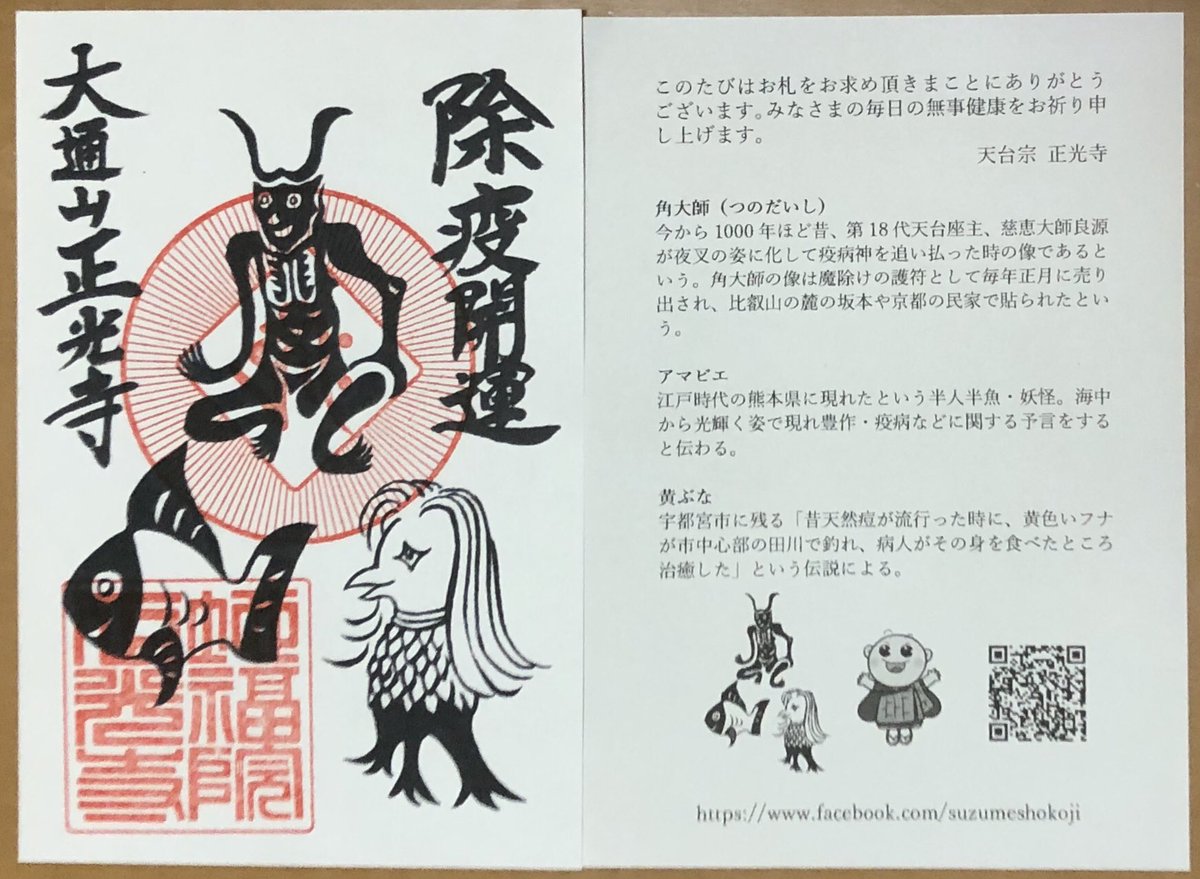 除疫開運
大通山正光寺
このたびはお札をお求め頂きまことにありがとう
ございます。みなさまの毎日の無事健康をお祈り申
し上げます。
天台宗 正光寺
角大師（つのだいし）
今から1000年ほど昔、第18代天台座主、慈恵大師良源
が夜叉の姿に化して疫病神を追い払った時の像であると
いう。角大師の像は魔除けの護符として毎年正月に売り
出され、比叡山の麓の坂本や京都の民家で貼られたとい
う。
アマビエ
江戸時代の熊本県に現れたという半人半魚・妖怪。海中
から光輝く姿で現れ豊作・疫病などに関する予言をする
と伝わる。
黄ぶな
宇都宮市に残る「昔天然痘が流行った時に、黄色いフナ
が市中心部の田川で釣れ、病人がその身を食べたところ
治癒した」という伝説による。
https://www.facebook.com/suzumeshokoji